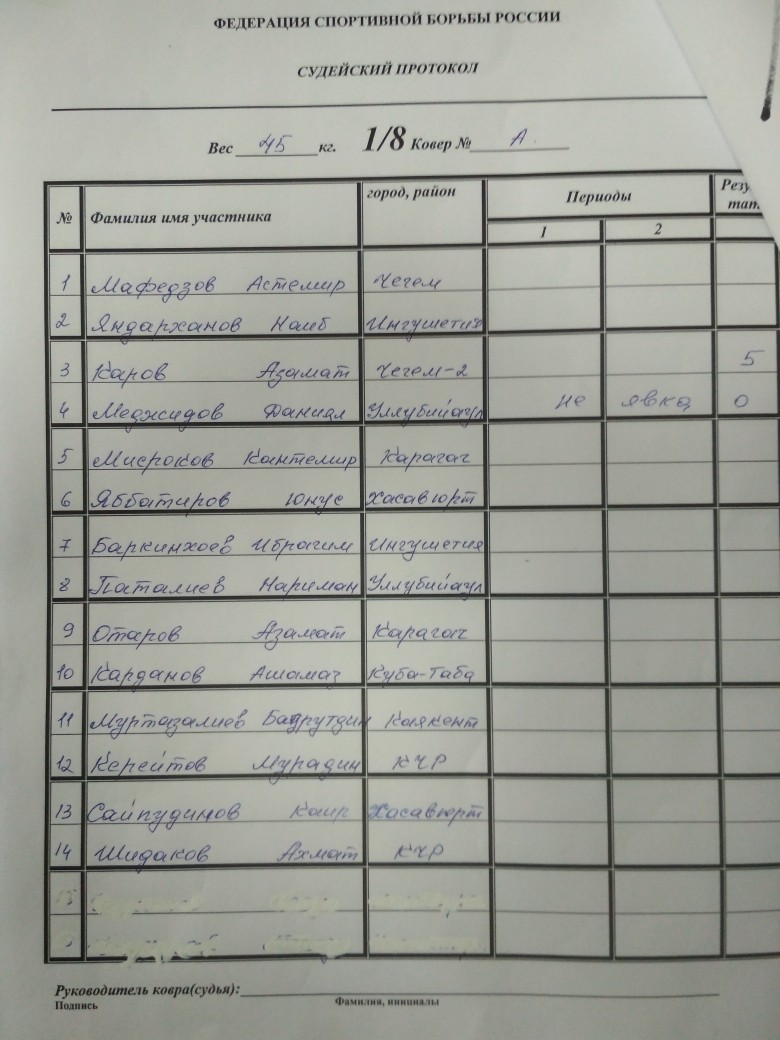 ФЕДЕРАЦИЯ СПОРТИВНОЙ БОРЬБЫ РОССИИ
СУДЕЙСКИЙ ПРОТОКОЛ
Вес 45 кг. 1/8 Ковер № А.
№ Фамилия имя участника город, район Периоды Резу
тат
1 2
1 Мафедзов Астемир Чегем
2 Яндарханов Наиб Ингушетия
3 Каров Азамат Чегем-2 5
4 Меджидов Даниал Уллубийаул не явка 0
5 Мисроков Кантемир Карагач
6 Яббатиров Юнус Хасавюрт
7 Баркинхоев Ибрагим Ингушетия
8 Паталиев Нариман Уллубийаул
9 Отаров Азамат Карагач
10 Карданов Ашамаз Куба-Таба
11 Муртазалиев Бадрутдин Каякент
12 Керейтов Мурадин КЧР
13 Сайпудинов Каир Хасавюрт
14 Шидаков Ахмат КЧР
Руководитель ковра(судья):
Подпись Фамилия, инициалы